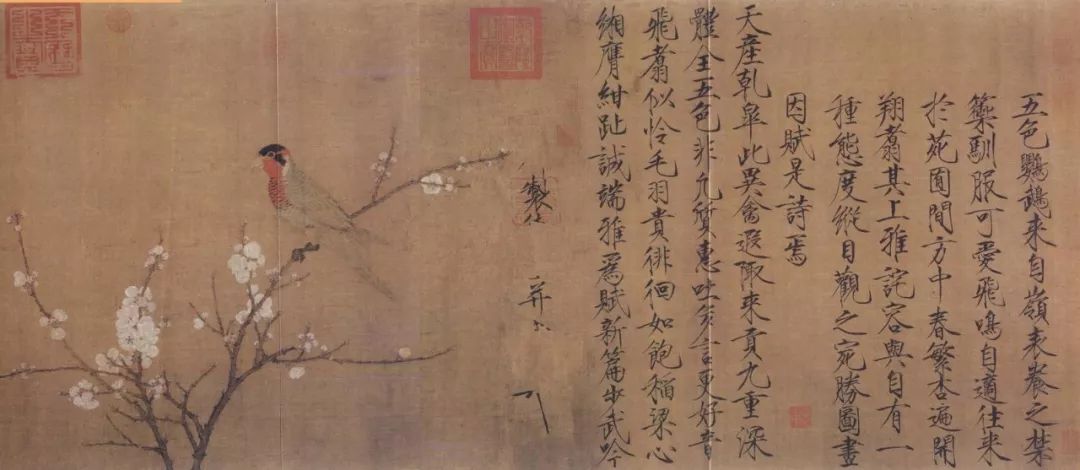 五色鸚鵡來自嶺表養之禁
籞馴服可愛飛鳴自適往來
於苑囿間方中春繁杏遍開
翔翥其上雅詫容與自有一
種態度縱目觀之宛勝圖畫
因賦是詩焉
天產乾皋此異禽遐陬來貢九重深
體全五色非凡質惠吐多言更好音
飛翥似怜毛羽貴徘徊如飽稻梁心
緗膺紺趾誠端雅爲賦新篇步武吟
製
并